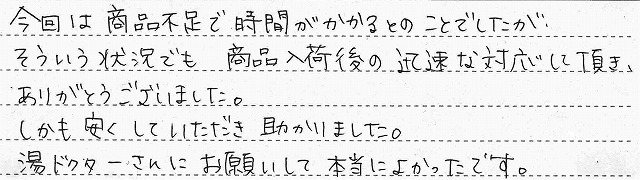 今回は商品不足で時間がかかるとのことでしたが
そういう状況でも 商品入荷後の迅速な対応して頂き、
ありがとうございました。
しかも安くしていただき助かりました。
湯ドクターさんにお願いして本当によかったです。